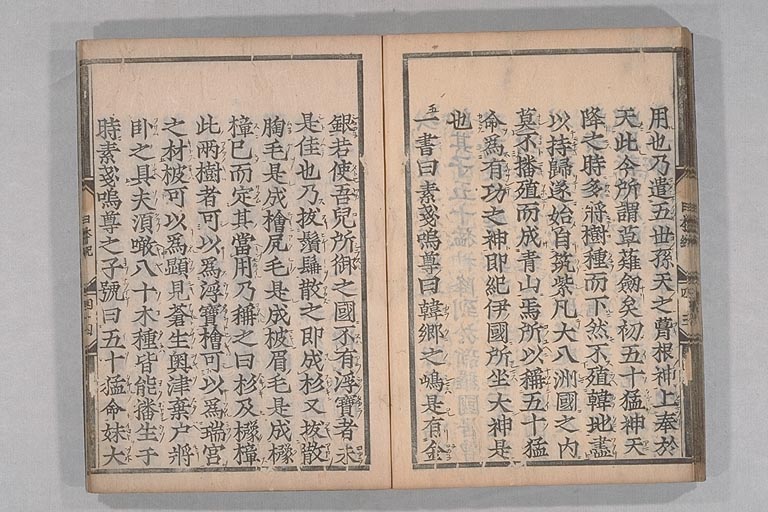 用也乃遣五世孫天之葺根神上奉於
天此今所謂草薙劔矣初五十猛神天
降之時多將樹種而下然不殖韓地盡
以持歸遂始自筑紫凡大八洲國之内
莫不播殖而成青山焉所以稱五十猛
命爲有功之神即紀伊國所坐大神是
也
一書曰素戔嗚尊曰韓郷之嶋是有金
銀若使吾兒所御之國不有浮寶者未
是佳也乃拔鬚髯散之即成杉又拔散
胸毛是成檜尻毛是成柀眉毛是成櫲
樟已而定其當用乃稱之曰杉及櫲樟
此兩樹者可以爲浮寶檜可以爲瑞宮
之材柀可以爲顯見蒼生奥津棄戸將
卧之具夫湏噉八十木種皆能播生于
時素戔嗚尊之子號曰五十猛命妹大
日本書紀